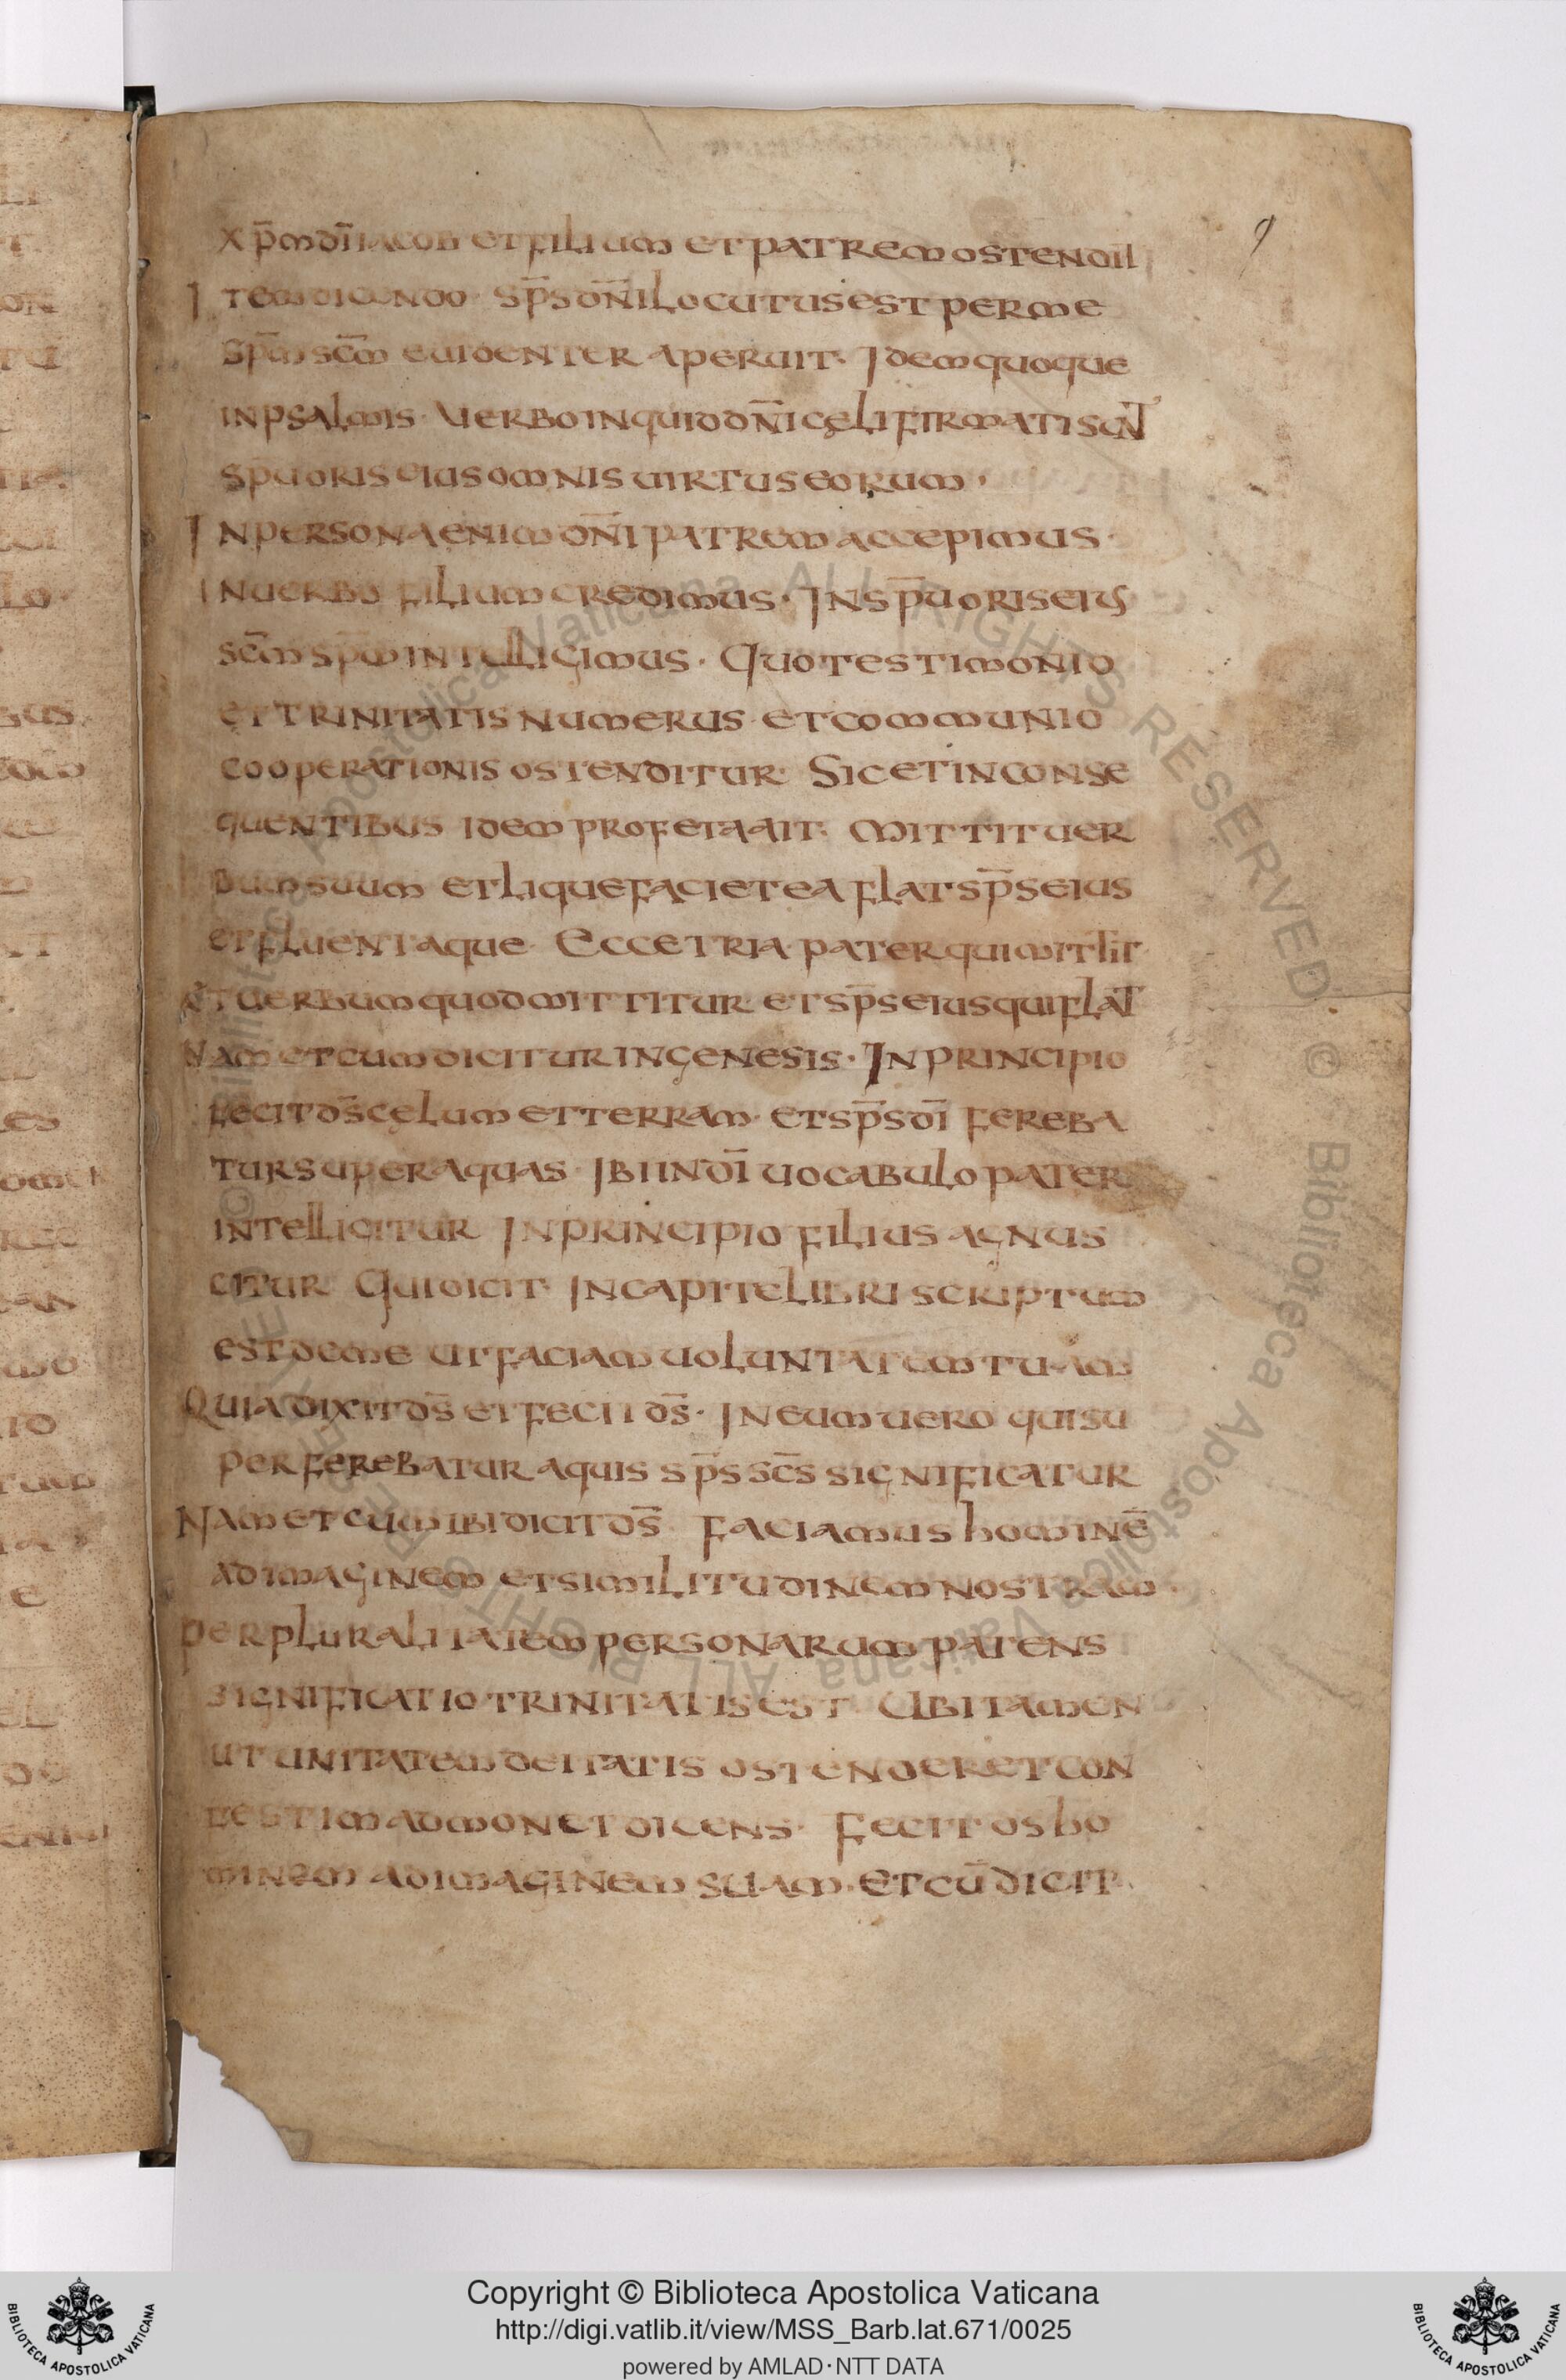 9
xp̄m dī iacob et filium et patrem ostendit
Item dicendo · sp̄s dn̄i locutus est per me
sp̄m sc̄m euidenter aperuit · Idem quoque
in psalmis · Uerbo inquid dn̄i cęli firmati sunt
spu oris eius omnis uirtus eorum ·
In persona enim dn̄i patrem accepimus ·
In uerbo filium credimus · In sp̄u oris eius
sc̄m sp̄m intelligimus · Quo testimonio
et trinitatis numerus et communio
cooperationis ostenditur · Sic et in conse
quentibus idem profeta ait · Mittit uer
bum suum et liquefaciet ea flat sp̄s eius
et fluent aque · Ecce tria · pater qui mittit ·
et uerbum quod mittitur et sp̄s eius qui flat
Nam et cum dicitur in genesis · In principio
fecit ds̄ cęlum et terram · et sp̄s dī fereba
tur super aquas · Ibi in dī uocabulo pater
intelligitur In principio filius agnus
citur Qui dicit · In capite libri scriptum
est de me ut faciam uoluntatem tuam
Quia dixit ds̄ et fecit ds̄ · In eum uero qui su
per ferebatur aquis sp̄s sc̄s significatur
Nam et cum ibi dicit ds̄ · faciamus hominē
ad imaginem et similitudinem nostram ·
per pluralitatem personarum patens
significatio trinitatis est Ubi tamen
ut unitatem deitatis ostenderet con
festim admonet dicens · Fecit ds ho
minem ad imaginem suam · Et cū dicit
© Biblioteca Apostolica Vaticana ALL RIGHTS RESERVED
Copyright © Biblioteca Apostolica Vaticana
http://digi.vatlib.it/view/MSS_Barb.lat.671/0025
powered by AMLAD·NTT DATA
BIBLIOTECA APOSTOLICA VATICANA
BIBLIOTECA APOSTOLICA VATICANA